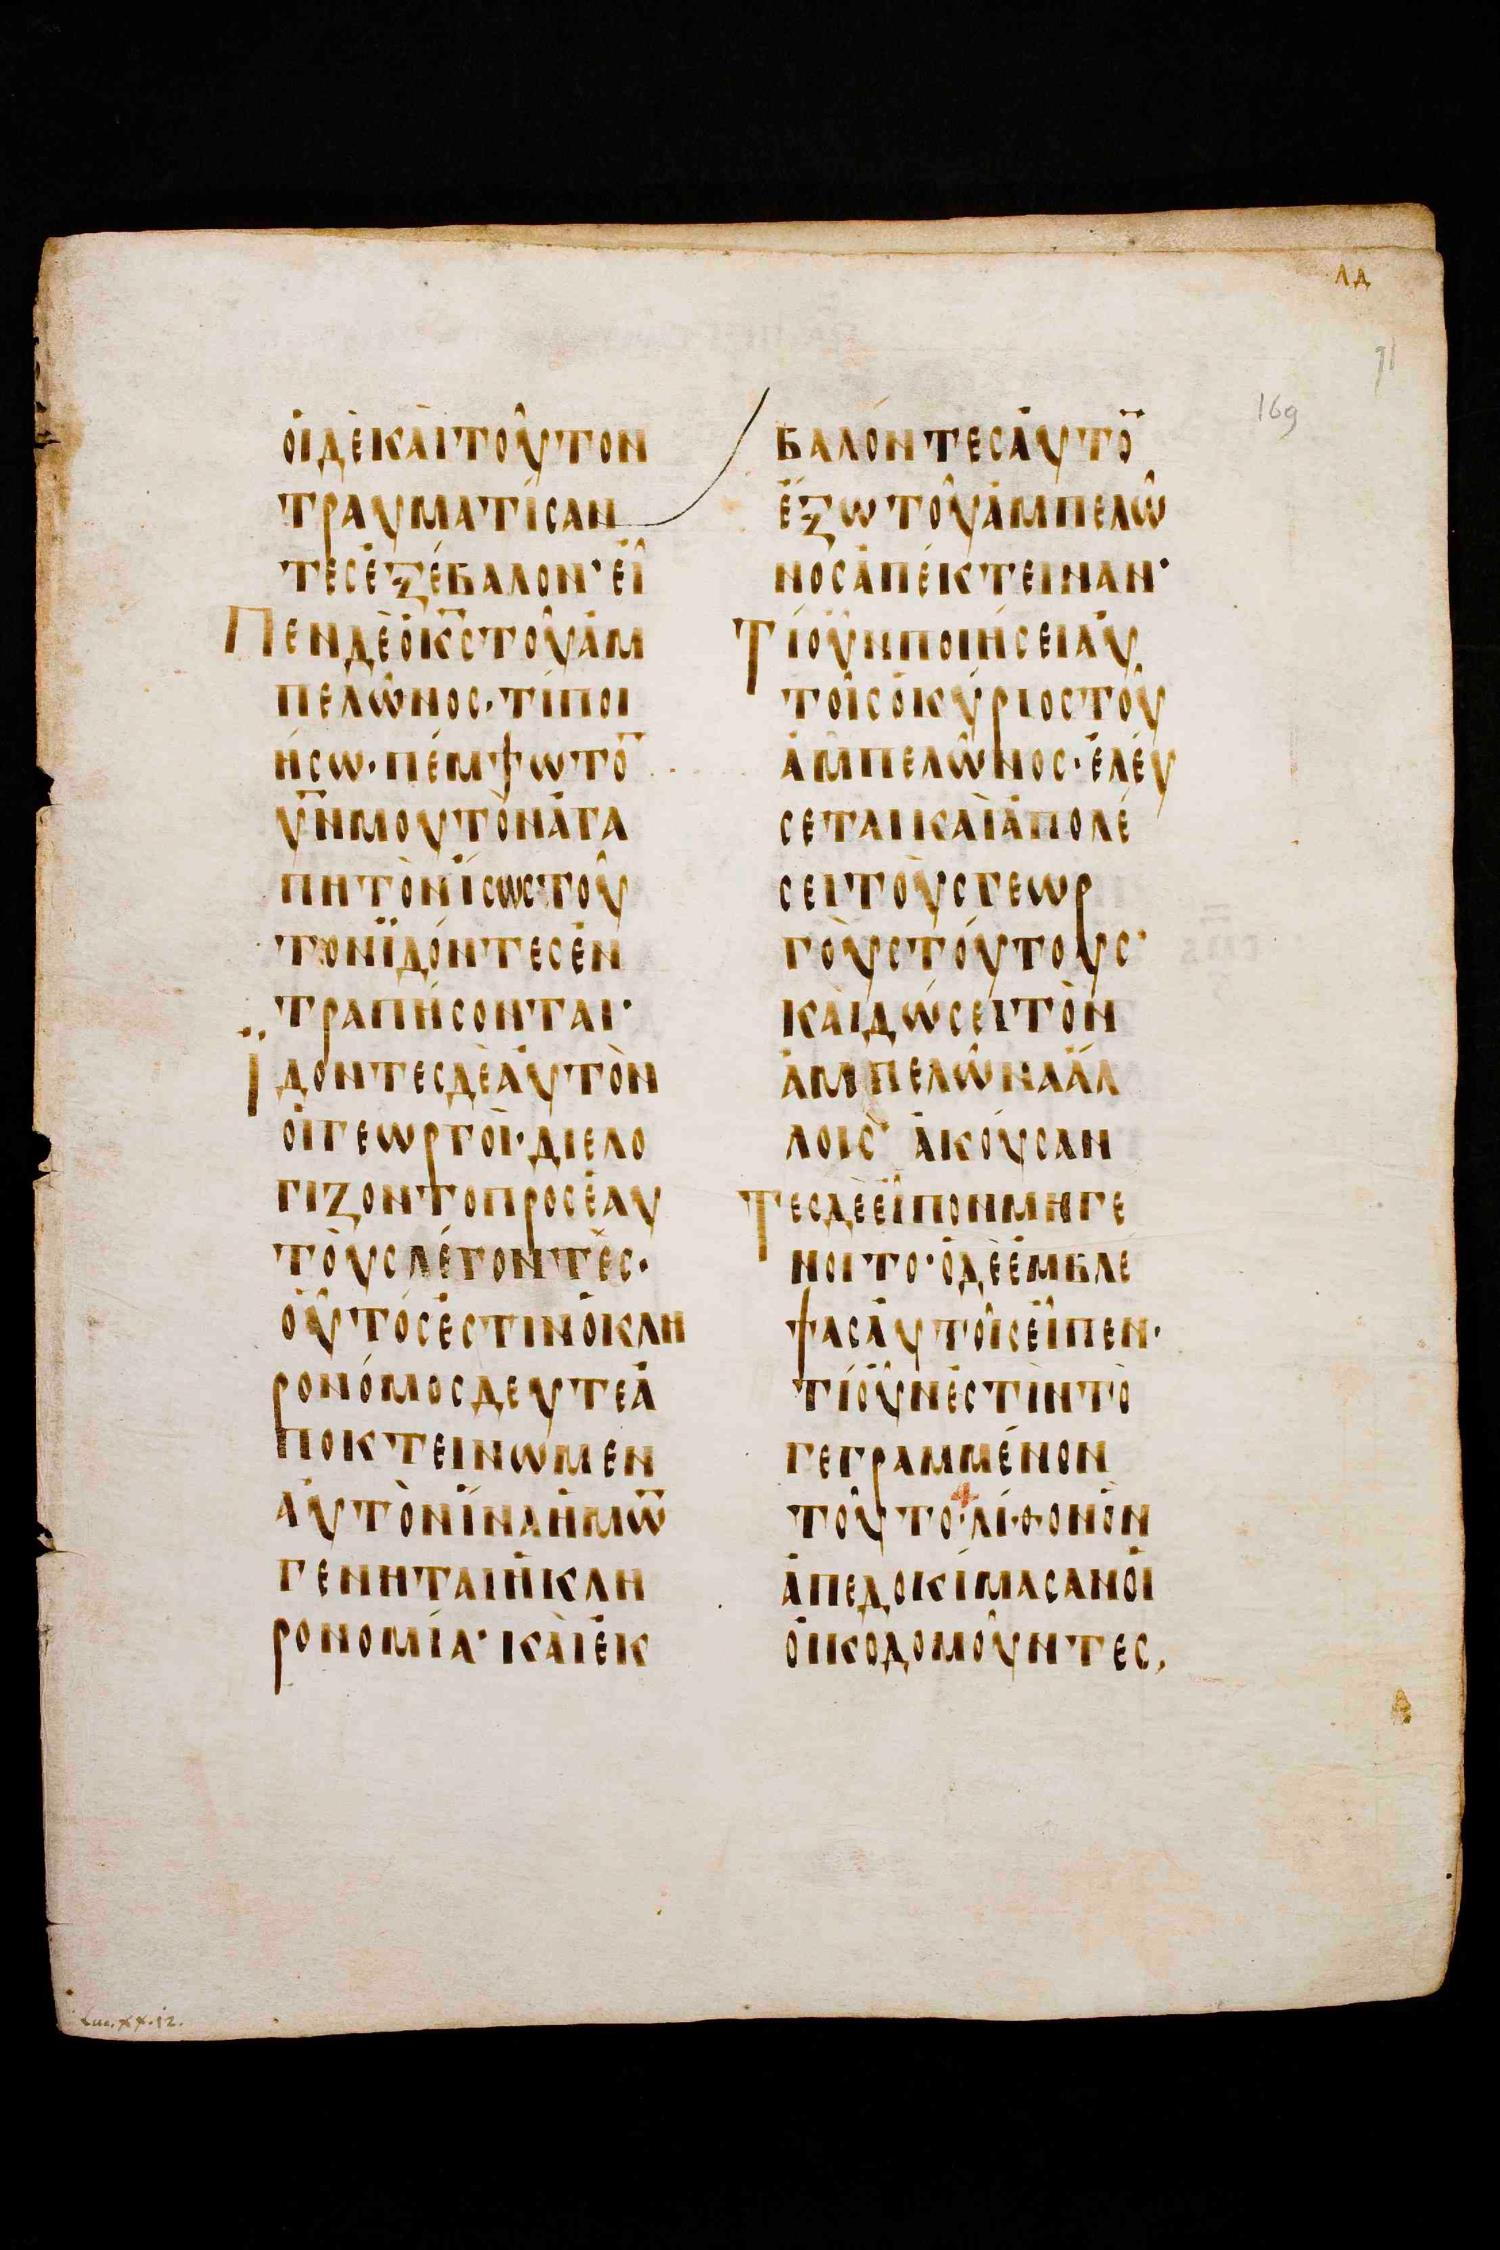 ΛΔ
71
169
ὁιδὲκαὶτοῦτον
τραυματίσαν
τεσἐξέβαλον·εἶ
πενδὲὁκ̅ς̅τοῦἀμ
πελῶνος·τίποι
ήσω·πέμψωτο̅
υ̅ν̅μουτὸνἀγα
πητὸνἴσωςτοῦ
τονϊδόντεςἐν
τραπήσονται·
ϊδοντεςδὲἀυτὸν
ὁιγεωργοὶ·διελο
γιζοντοπροσἑαυ
τὸυςλέγοντὲς·
ὅυτόςἐστινὁκλη
ρονόμοςδευτεἀ
ποκτεινωμεν
ἀυτὸνἵναἡμῶ̅
γενηταιἡκλη
ρονομία·καὶἐκ
βαλόντεςἀυτὸ̅
ἔξωτοῦἀμπελῶ
νοςἀπέκτειναν·
τίὀῦνποιήσειἀυ
τοῖςὁκύριοςτοῦ
ἀμπελῶνος·ἐλέυ
σεταικαὶἀπολέ
σειτοὺςγεωρ
γοὺςτόυτους·
καὶδώσειτὸν
ἀμπελῶναἄλ
λοις· ἀκούσαν
τεςδὲεἶπονμηγε
νοιτο·ὁδὲἐμβλέ
ψασἀυτοῖςεἶπεν·
τίὀῦνἐστὶντὸ
γεγραμμένον
τοῦτο·λίθονὃν
ἀπεδοκίμασανὁι
ὀικοδομοῦντες,
Luc. XX. 12.